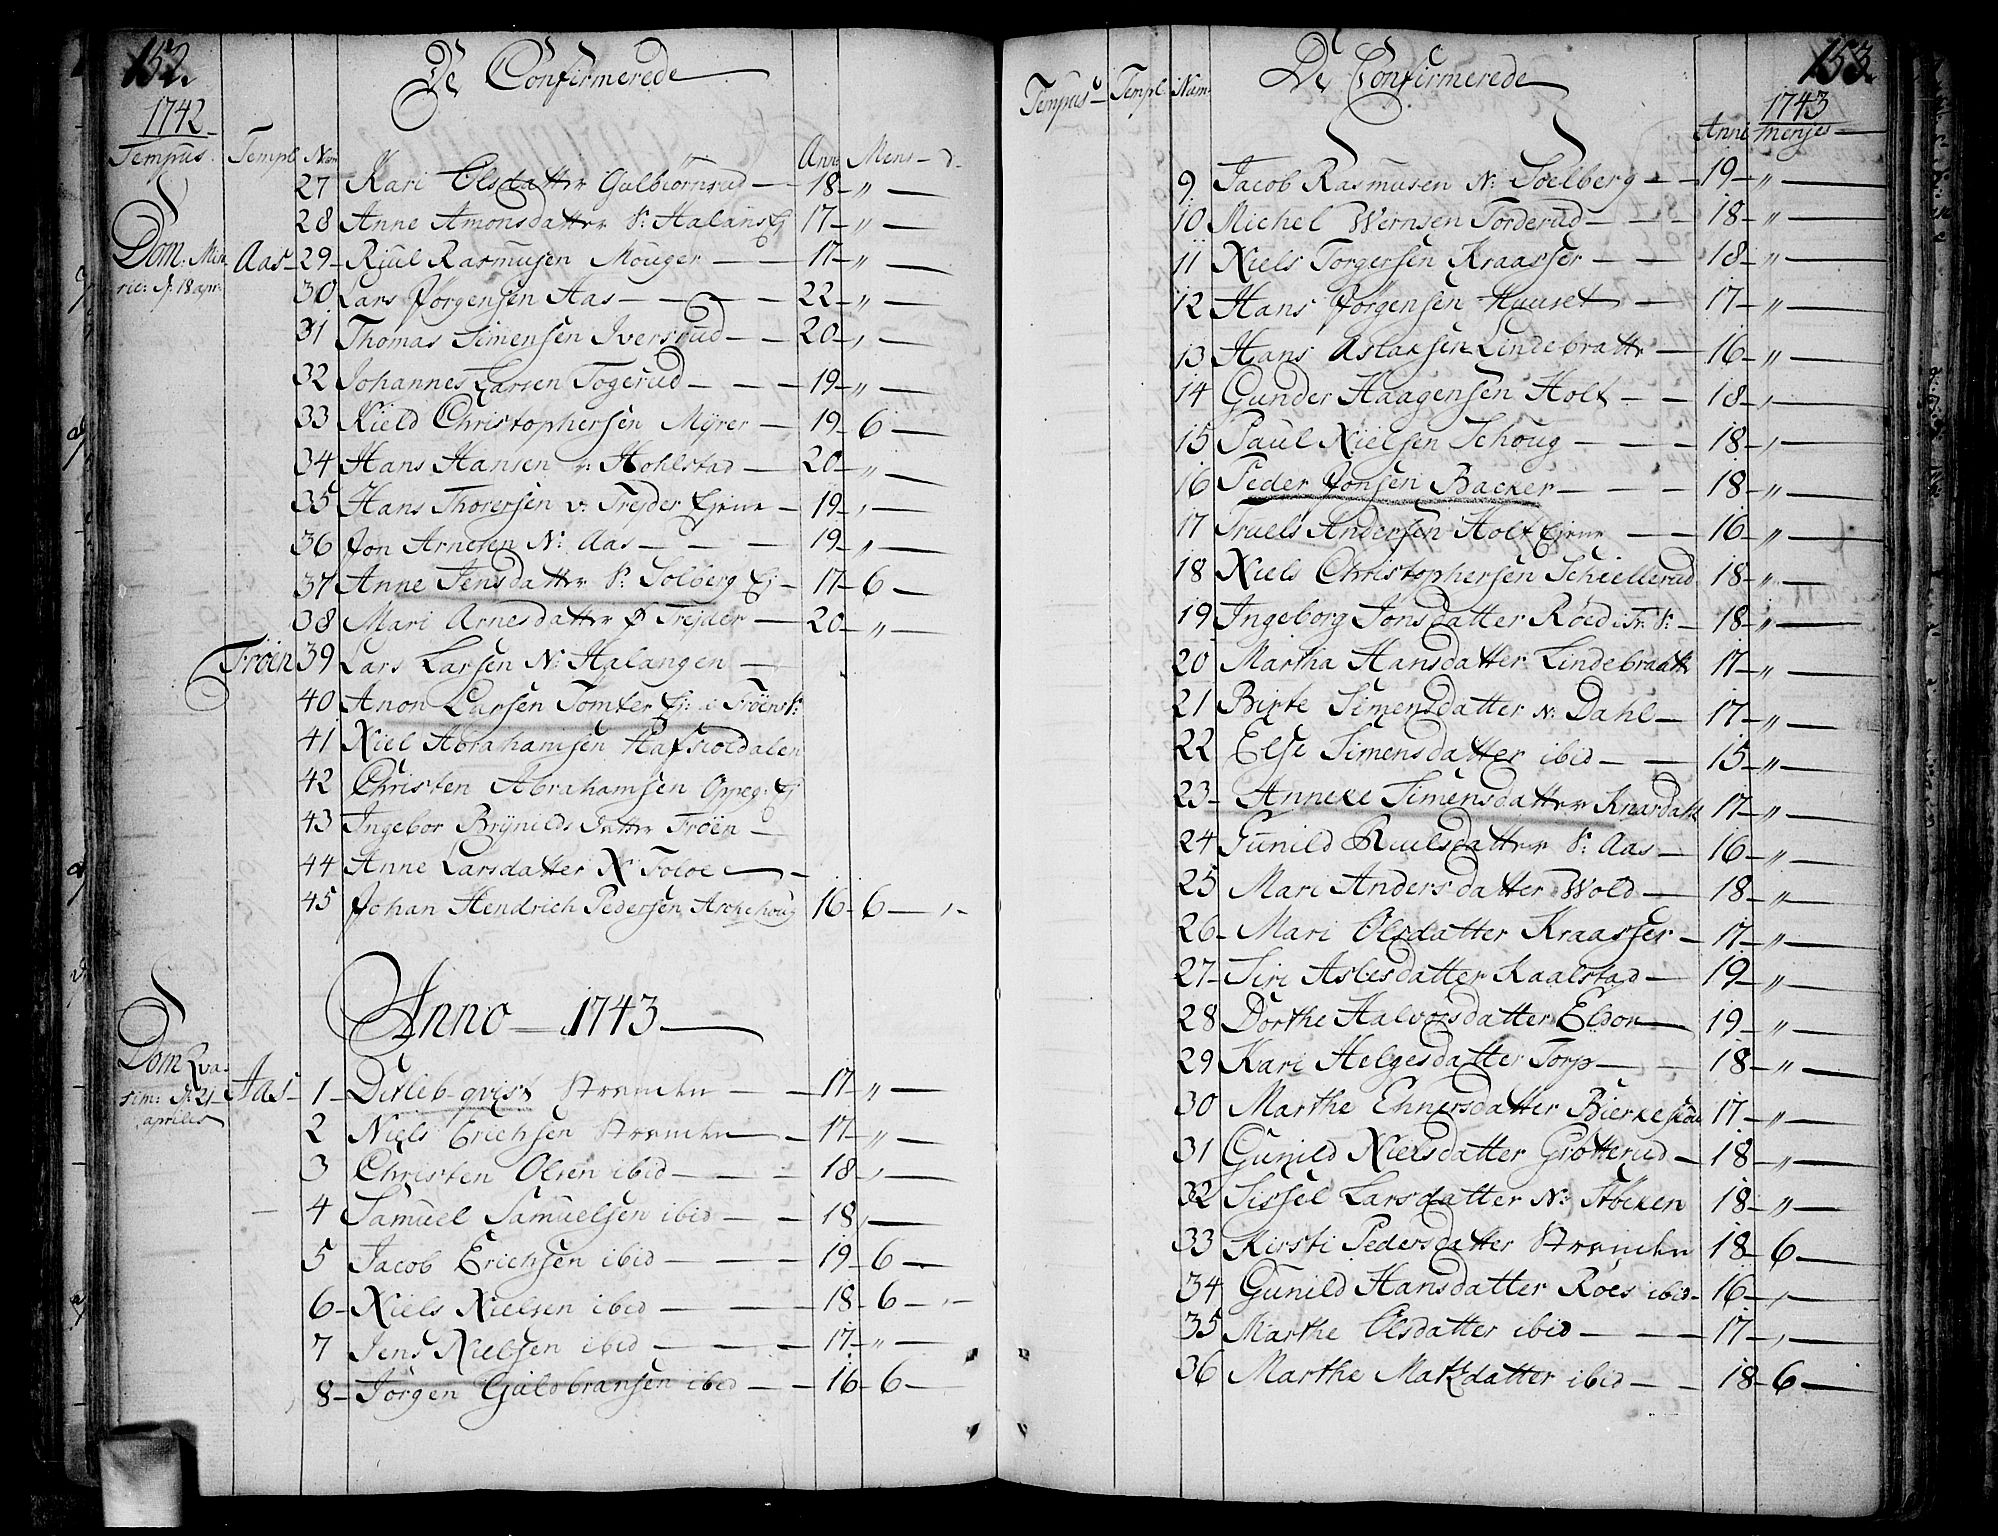 152.
De Confirmerede
1742
Tempus. Templ Num Ann: Mens - d.
27 Kari Olsdatter Gulbiörnrud 18 - "
28 Anne Amonsdatter S: Halans Ej 17 - "
Dom. Mise- Aas - 29 - Rjul Rasmusen Mouger 17 - "
ric: d. 18 apr: 30 Lars Jörgensen Aas 22 - "
31 Thomas Simensen Iversrud 20 -
32 Johannes Larsen Togerud 19 - "
33 Kield Christophersen Myrer 19 - 6
34 Hans Hansen v: Hohlstad 20 - "
35 Hans Thorersen v: Trejder Ejene 19 -
36 Jon Arnesen N: Aas 19 - "
37 Anne Jensdatter S: Solberg Ej 17 - 6
38 Mari Arnesdatter Trejder 20 - "
Fröen 39 Lars Larsen N: Halangen
40 Anon Larsen Tomter Ej: i Fröens S:
41 Niel Abrahamsen Hafsioldalen
42 Christen Abrahamsen Oppeg: Ej
43 Ingebor Brynilds datter Fröen
44 Anne Larsdatter N Foloe
45 Johan Hendrich Pedersen Aschehoug 16 - 6
Anno 1743
Dom Qva-
sim: d. 21 Aas - 1 - Ditleb qvist 17 - "
aprilis 2 Niels Erichsen 17 - "
3 Christen Olsen ibid 18
4 Samuel Samuelsen ibid 18
5 Jacob Erichsen ibid 19 - 6
6 - Niels Nielsen ibid 18 - 6
7 Jens Nielsen ibid 17 - "
8 - Jörgen Guldbransen ibid 16 - 6
153.
De Confirmerede
1743
Tempus Templ. Num: Anni menses
9 Jacob Rasmusen N: Soelberg 19 - "
10 Michel Wernsen Torderud 18 - "
11 Niels Torgersen Kraasser 18 - "
12 Hans Jörgensen Huuset 17 - "
13 Hans Aslaksen Lindebratte 16 - "
14 Gunder Haagensen Holt 18 -
15 Paul Nielsen Schoug 18 -
16 Peder Jonsen Backer 18 - "
17 Truels Andersen Holt Ejene 16 - "
18 Niels Christophersen Schiellerud 18 - "
19 Ingeborg Jonsdatter Röed i Fr: S: 18 - "
20 Martha Hansdatter Lindebratt 17 - "
21 Birte Simensdatter N: Dahl 17 - "
22 Else Simensdatter ibid 15 - "
23 - Anneke Simensdatter Knardahl 17 - "
24 Gunild Riulsdatter S: Aas 16 - "
25 Mari Andersdatter Wold 18 - "
26 - Mari Olsdatter Kraasser 17 - "
27 - Siri Aslesdatter Kaalstad 19 - "
28 Dorthe Halvorsdatter Eldor 19 - "
29 Kari Helgesdatter Torp 18 - "
30 Marthe Ehnersdatter 17 - "
31 Gunild Nielsdatter Grötterud 18 - "
32 Sissel Larsdatter N: Stöeken 18 - "
33 Kirsti Pedersdatter 18 - 6
34 Gunild Hansdatter Röes ibid 16 -
35 Marthe Olsdatter ibid 17 -
36 Marthe Matzdatter ibid 18 - 6